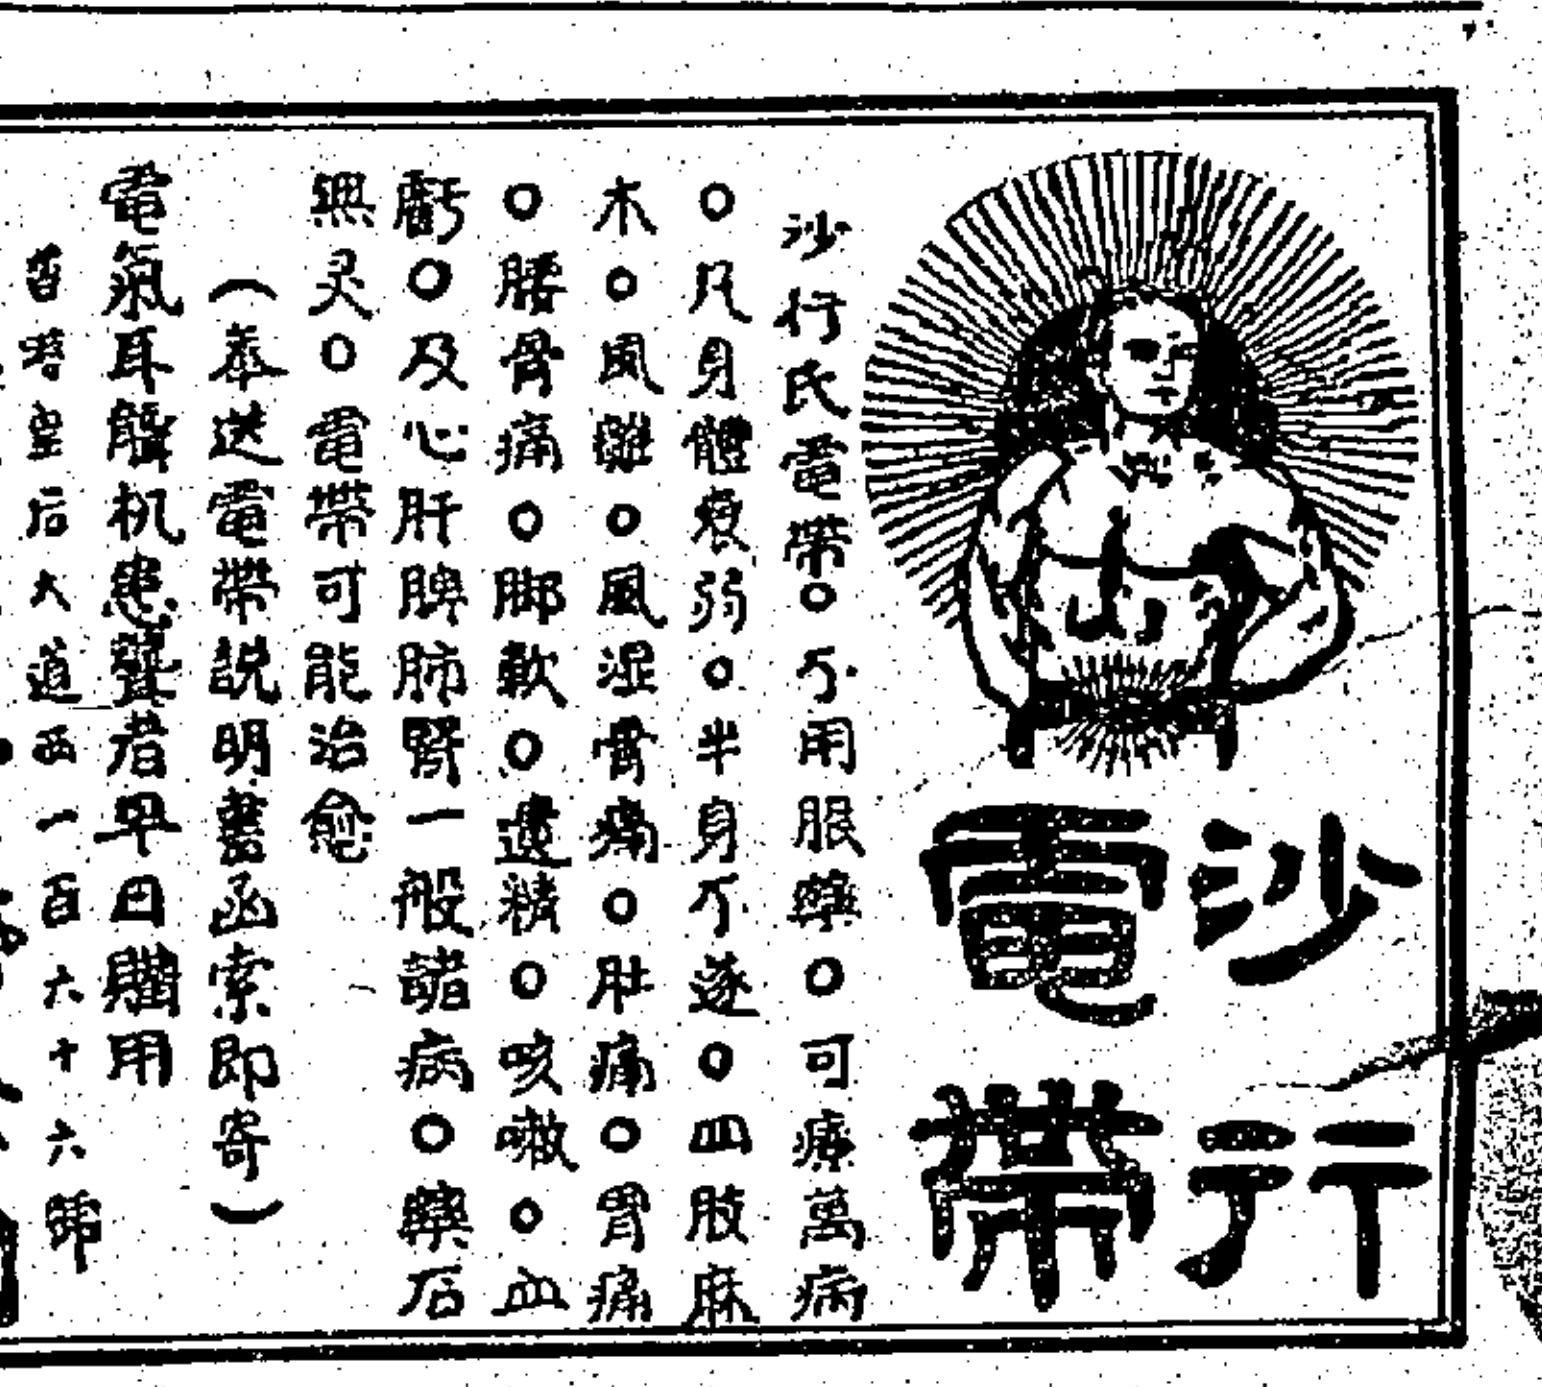 沙行
電帶
沙行氏電帶○不用服藥○可療萬病
○凡身體衰弱○半身不遂○四肢麻
木○風難○風湿骨痛○肚痛○胃痛
○腰骨痛○脚軟○遺精○咳嗽○血
虧○及心肝脾肺腎一般諸病○藥石
無灵○電帶可能治愈
(奉送電帶説明書函索即寄)
電氣耳機患聾者早日購用
皇后大道西一百六十六號